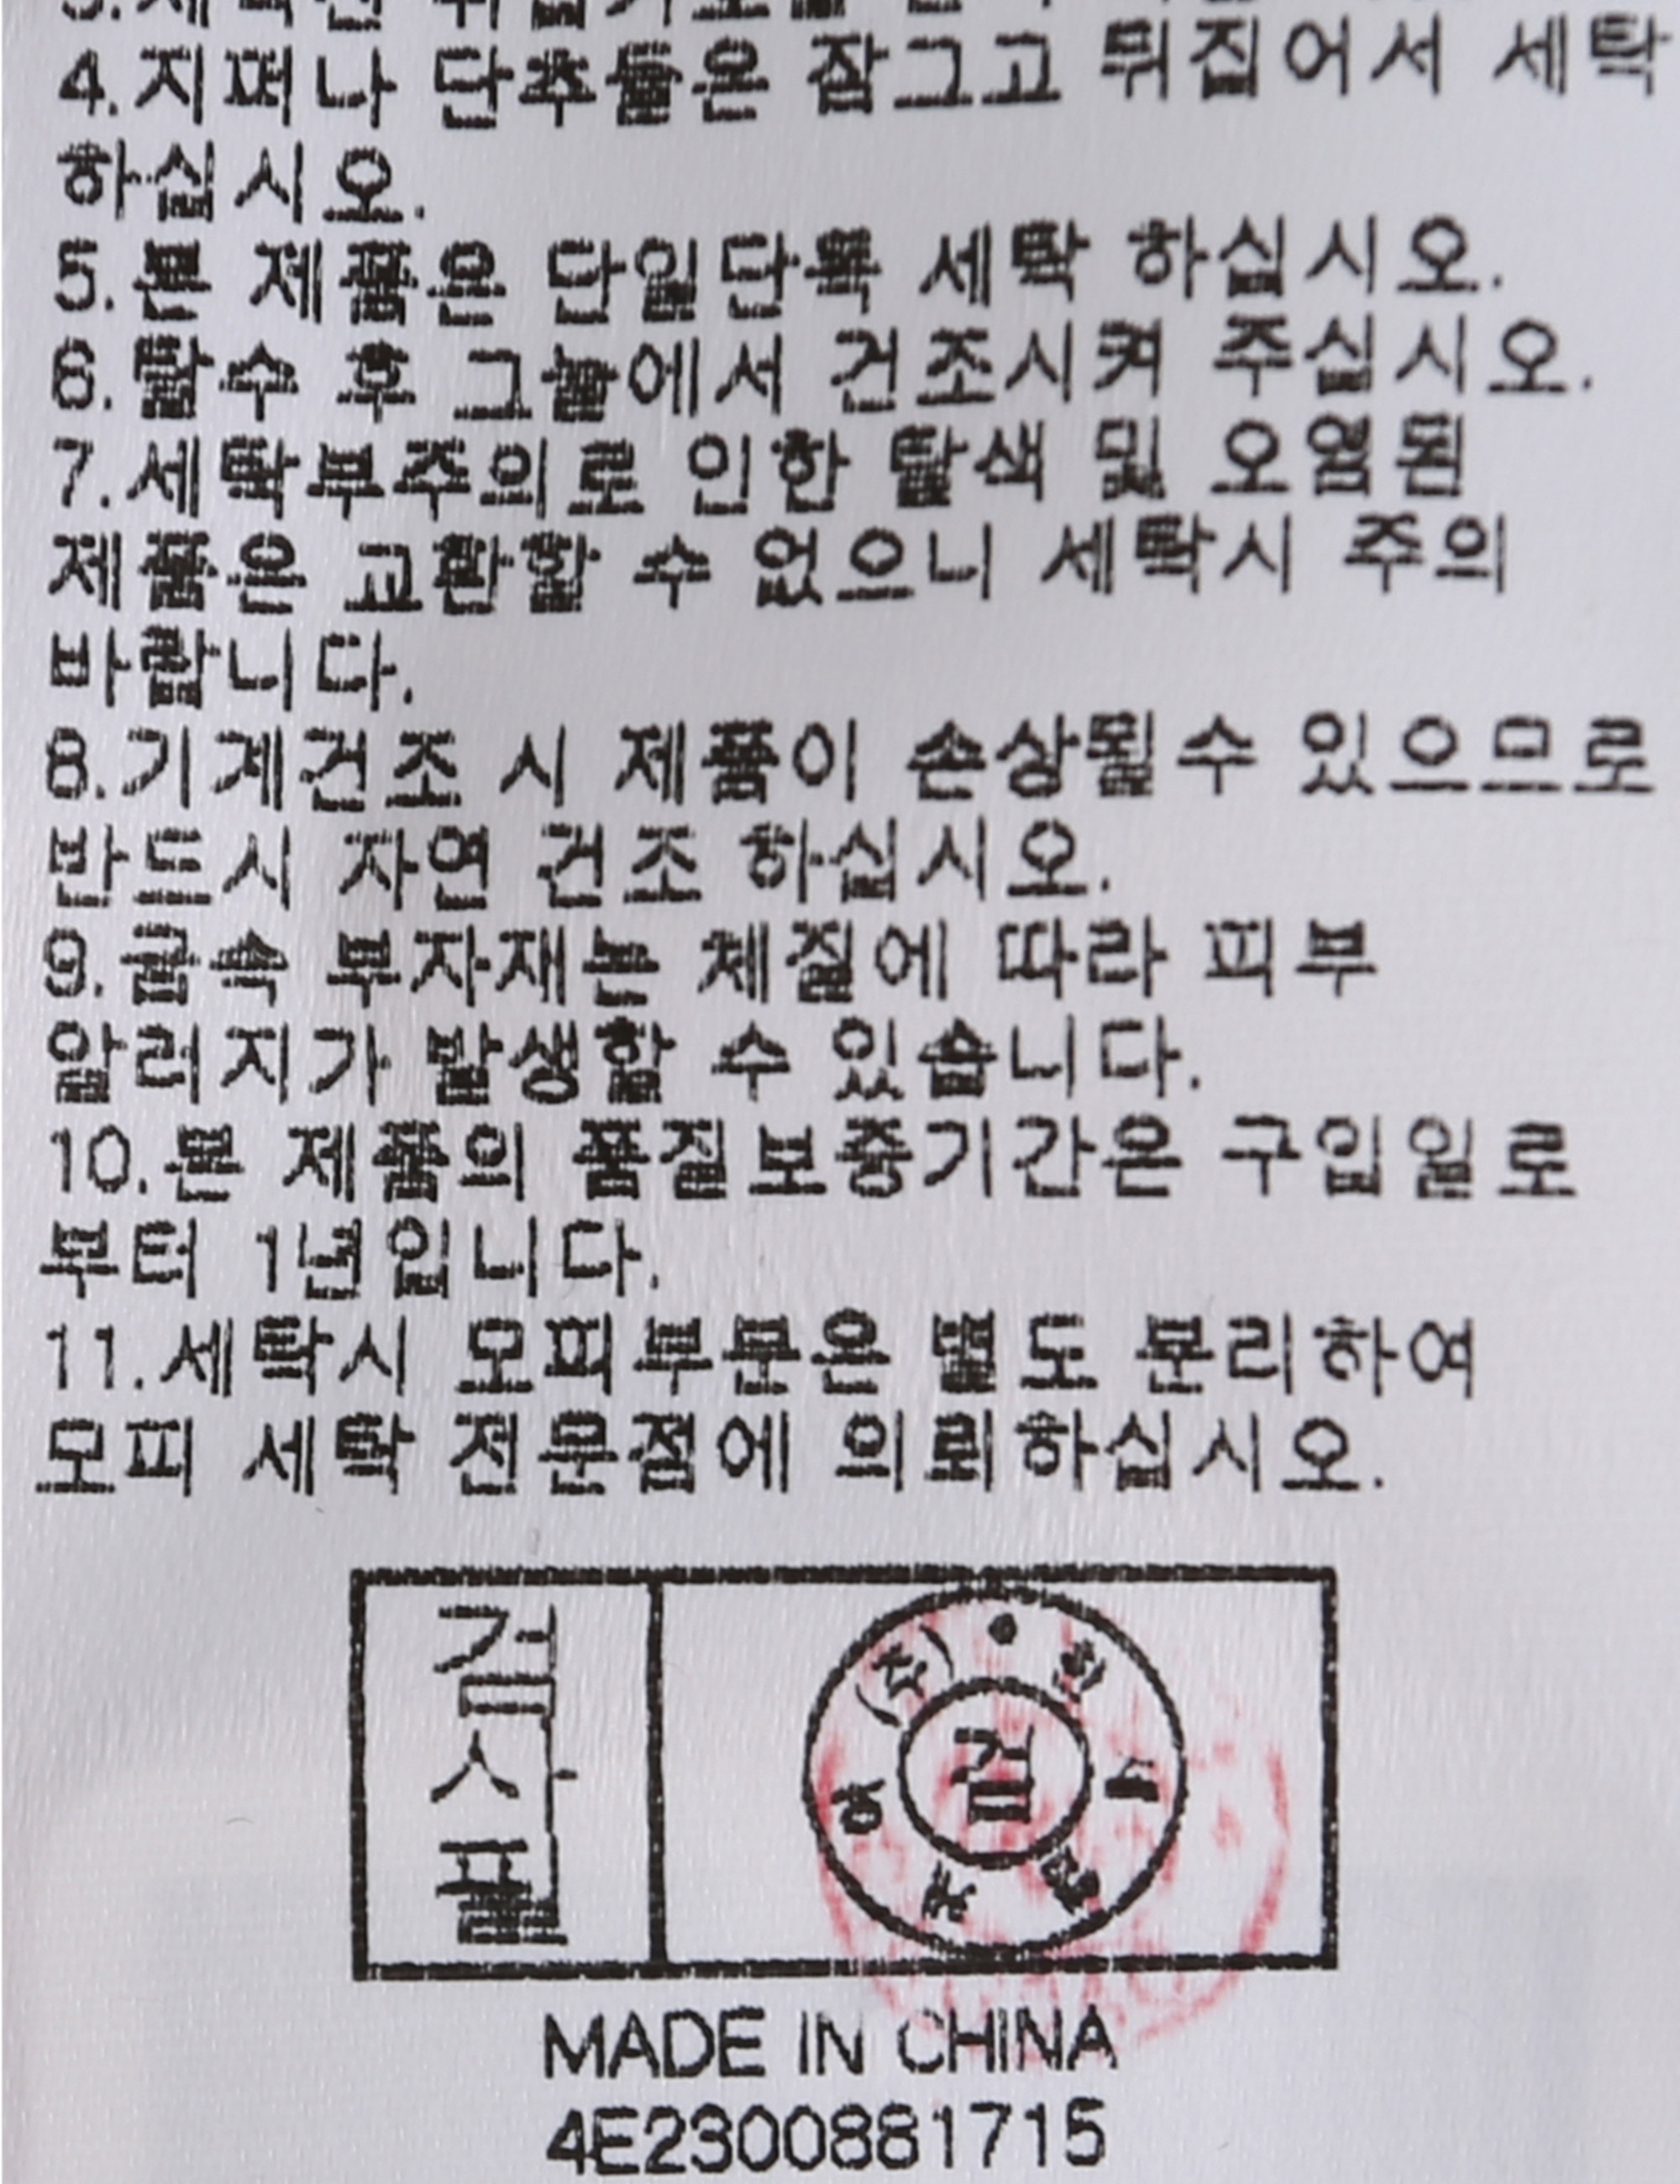 4.지퍼나 단추들은 잠그고 뒤집어서 세탁
하십시오.
5.본 제품은 단일단독 세탁 하십시오.
6.탈수 후 그늘에서 건조시켜 주십시오.
7.세탁부주의로 인한 탈색 및 오염된
제품은 교환할 수 없으니 세탁시 주의
바랍니다.
8.기계건조 시 제품이 손상될수 있으므로
반드시 자연 건조 하십시오.
9.금속 부자재는 체질에 따라 피부
알러지가 발생할 수 있습니다.
10.본 제품의 품질보증기간은 구입일로
부터 1년입니다.
11.세탁시 모피부분은 별도 분리하여
모피 세탁 전문점에 의뢰하십시오.
검사필
검
MADE IN CHINA
4E2300881715